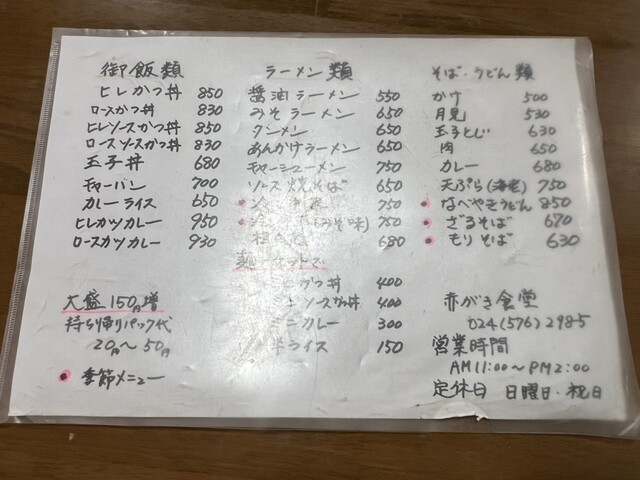 御飯類
ヒレかつ丼 850
ロースかつ丼 830
ヒレソースかつ丼 850
ロースソースかつ丼 830
玉子丼 680
チャーハン 700
カレーライス 650
ヒレカツカレー 950
ロースカツカレー 930
大盛 150円増
持ち帰りパック代
20円〜50円
季節メニュー
ラーメン類
醤油ラーメン 550
みそラーメン 650
タンメン 650
あんかけラーメン 650
チャーシューメン 750
ソース焼そば 650
冷 750
冷 (みそ味) 750
680
麺
かつ丼 400
ソースかつ丼 400
ミニカレー 300
半ライス 150
そば・うどん類
かけ 500
月見 530
玉子とじ 630
肉 650
カレー 680
天ぷら(海老) 750
なべやきうどん 850
ざるそば 670
もりそば 630
赤がき食堂
024(576)2985
営業時間
AM11:00〜PM2:00
定休日 日曜日・祝日